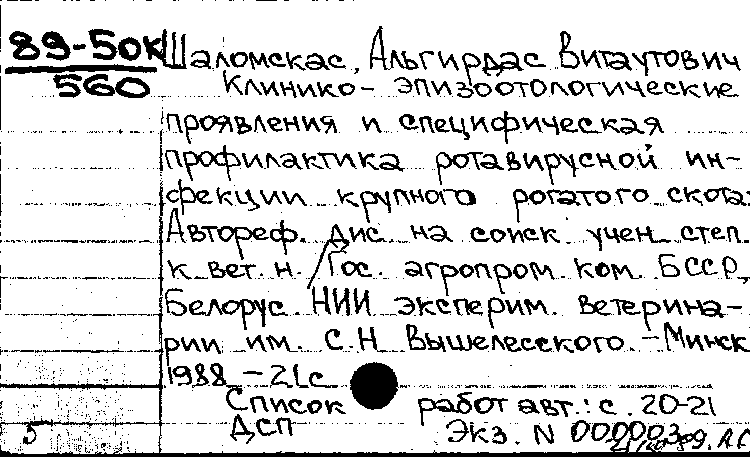 89-50к
560
Шаломскас, Альгирдас Витаутович
Клинико- эпизоотологические
проявления и специфическая
профилактика ротавирусной ин-
фекции крупного рогатого скота:
Автореф. дис. на соиск. учен. степ.
к. вет. н. / Гос. агропром. ком. БССР,
Белорус. НИИ эксперим. ветерина-
рии им. С.Н Вышелесского. - Минск
1988 - 21 с
Список работ авт.: с. 20-21
5 ДСП Экз. N 000003